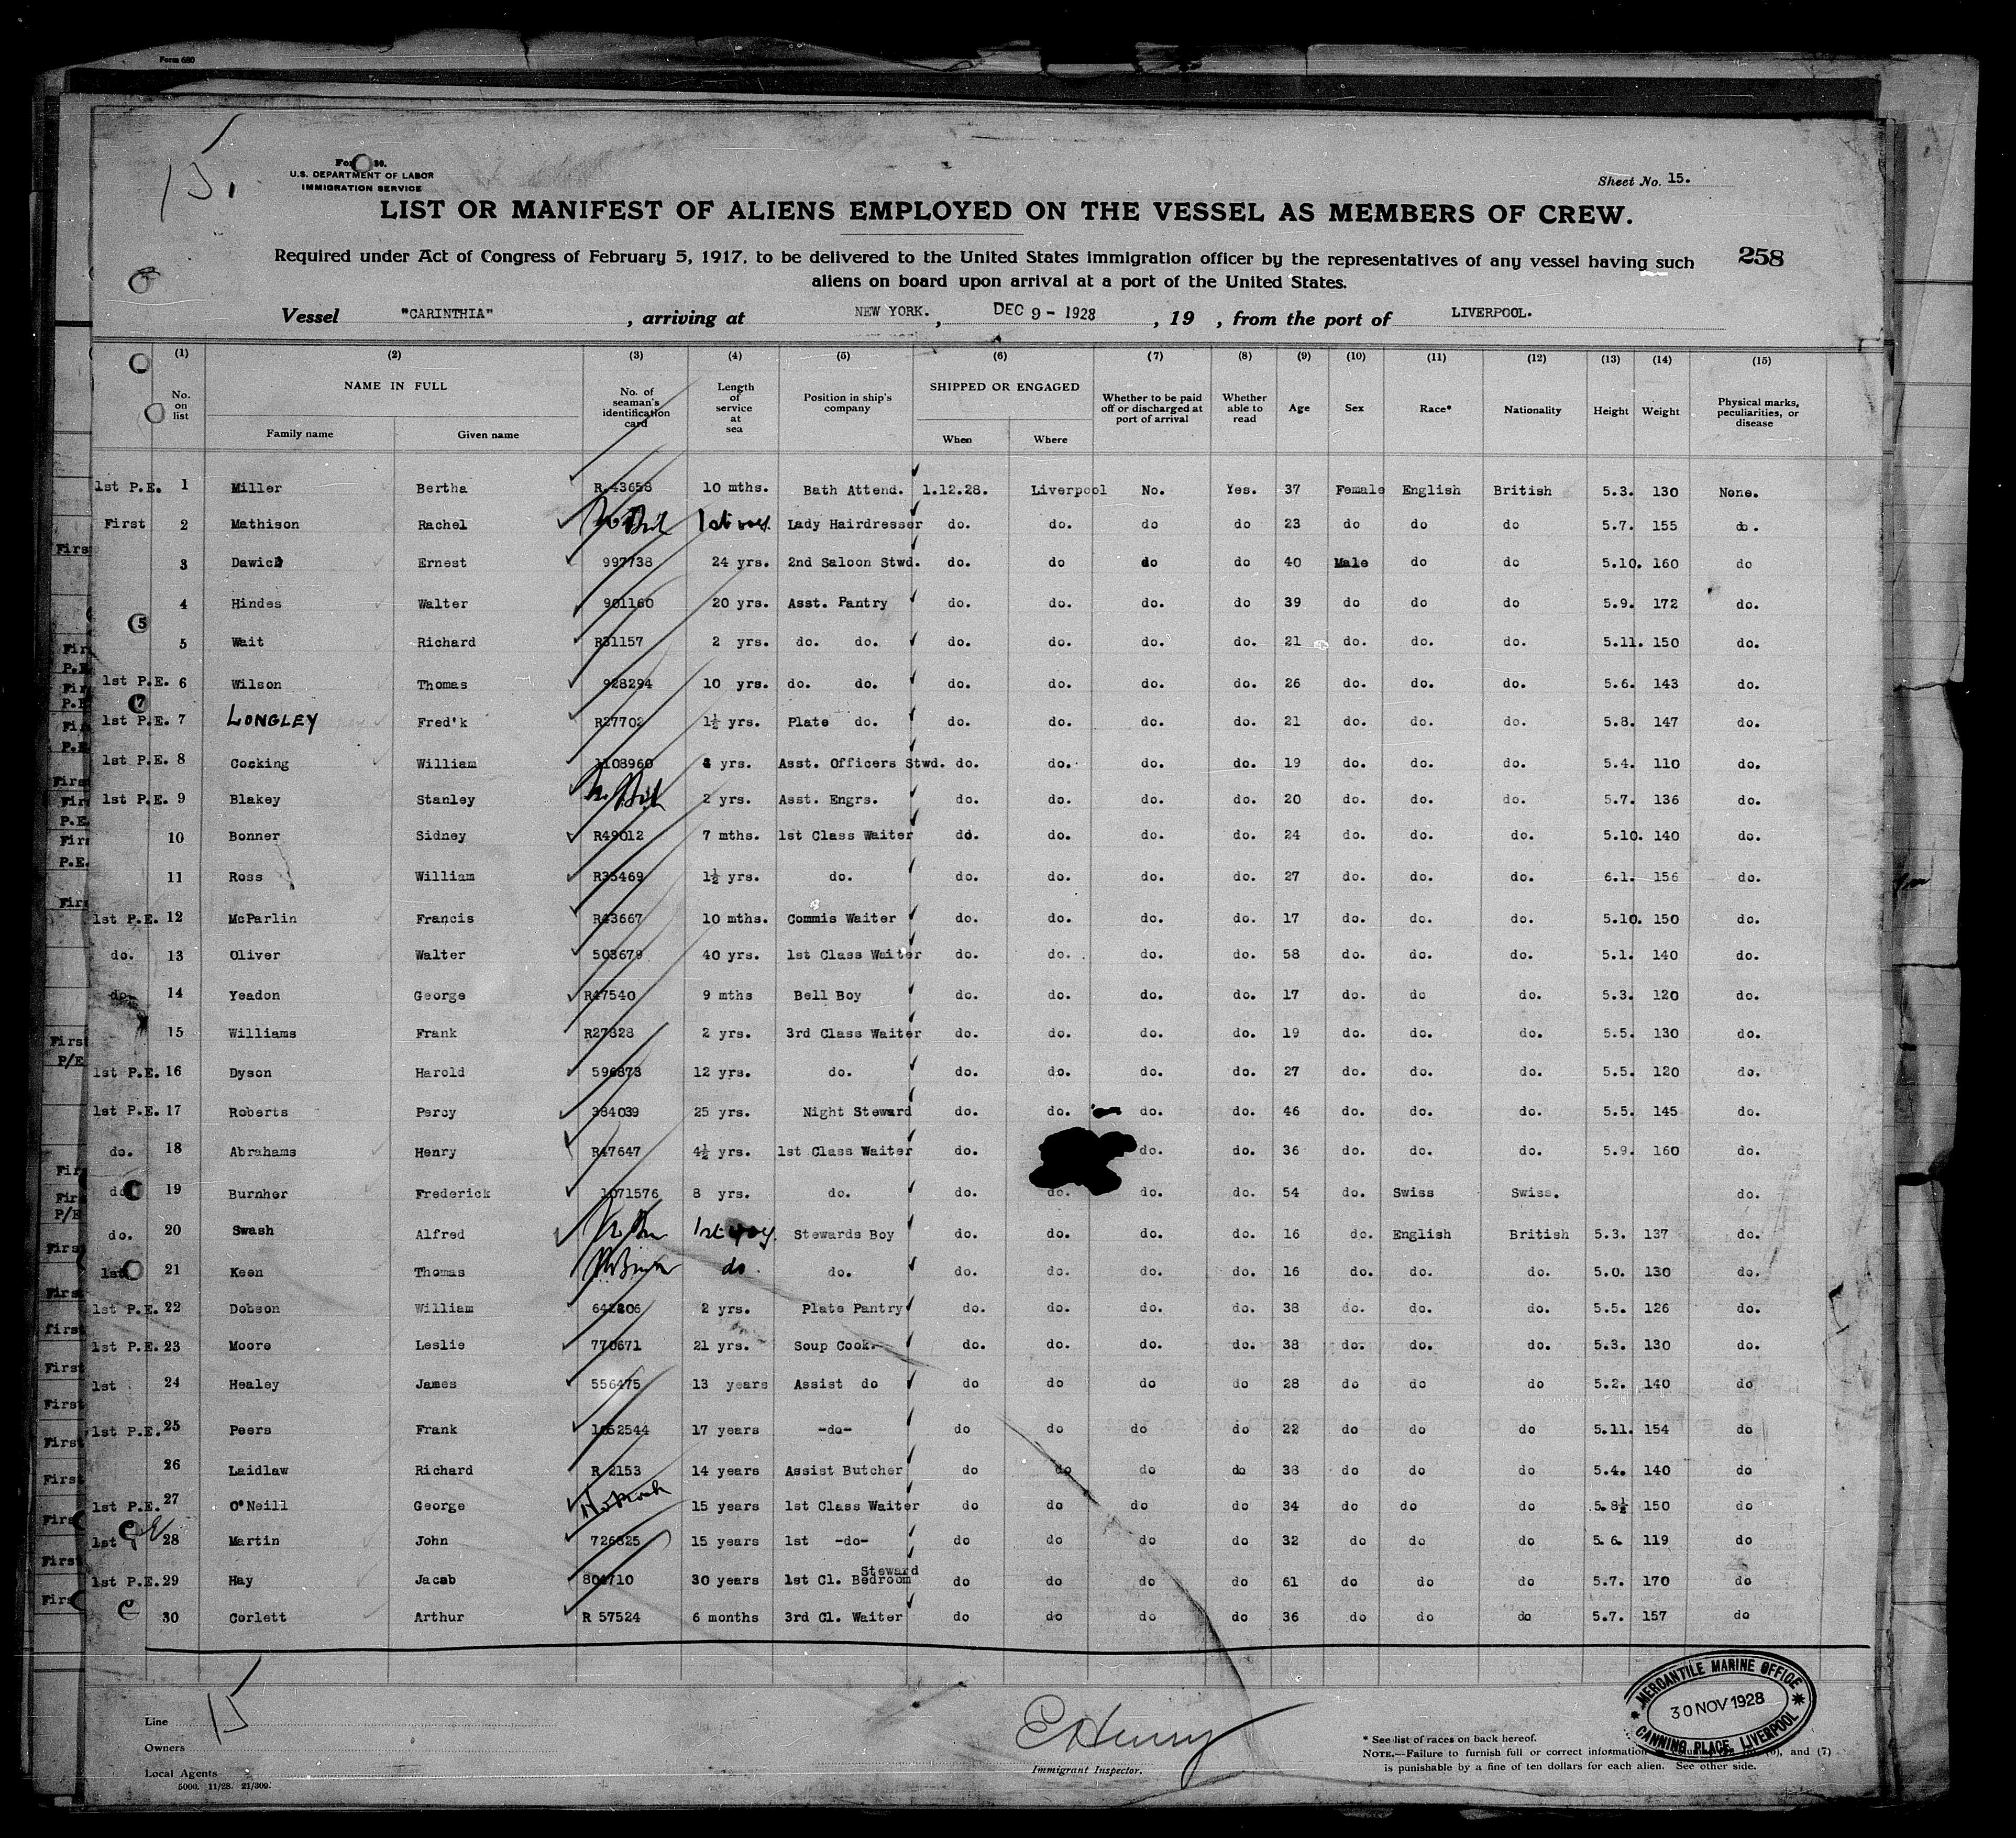 Form 680
15.
U.S. DEPARTMENT OF LABOR
IMMIGRATION SERVICE
Sheet No. 15.
LIST OR MANIFEST OF ALIENS EMPLOYED ON THE VESSEL AS MEMBERS OF CREW.
Required under Act of Congress of February 5, 1917, to be delivered to the United States immigration officer by the representatives of any vessel having such
aliens on board upon arrival at a port of the United States.
258
Vessel "CARINTHIA" , arriving at NEW YORK. , DEC 9 - 1928 , 19 , from the port of LIVERPOOL.
(1) (2) (3) (4) (5) (6) (7) (8) (9) (10) (11) (12) (13) (14) (15)
No. on list NAME IN FULL Family name Given name No. of seaman's identification card Length of service at sea Position in ship's company SHIPPED OR ENGAGED When Where Whether to be paid off or discharged at port of arrival Whether able to read Age Sex Race* Nationality Height Weight Physical marks, peculiarities, or disease
1st P.E. 1 Miller Bertha R.43658 10 mths. Bath Attend. 1.12.28. Liverpool No. Yes. 37 Female English British 5.3. 130 None.
First 2 Mathison Rachel 1st voy. Lady Hairdresser do. do. do do 23 do do do 5.7. 155 do.
3 Ernest 997738 24 yrs. 2nd Saloon Stwd. do. do do do 40 Male do do 5.10. 160 do
4 Hindes Walter 901160 20 yrs. Asst. Pantry do. do. do. do 39 do do do 5.9. 172 do.
5 Wait Richard R31157 2 yrs. do. do. do. do. do. do. 21 do. do. do. 5.11. 150 do.
1st P.E. 6 Wilson Thomas 928294 10 yrs. do. do. do. do. do. do. 26 do. do. do. 5.6. 143 do.
1st P.E. 7 LONGLEY Fred'k R27702 1½ yrs. Plate do. do. do. do. do. 21 do. do. do. 5.8. 147 do.
1st P.E. 8 Cocking William 1108960 4 yrs. Asst. Officers Stwd. do. do. do. do. 19 do. do. do. 5.4. 110 do.
1st P.E. 9 Blakey Stanley 2 yrs. Asst. Engrs. do. do. do. do. 20 do. do. do. 5.7. 136 do.
10 Bonner Sidney R49012 7 mths. 1st Class Waiter do. do. do. do. 24 do. do. do. 5.10. 140 do.
11 Ross William R35469 1½ yrs. do. do. do. do. do. 27 do. do. do. 6.1. 156 do.
1st P.E. 12 McParlin Francis R43667 10 mths. Commis Waiter do. do. do. do. 17 do. do. do. 5.10. 150 do.
do. 13 Oliver Walter 503679 40 yrs. 1st Class Waiter do. do. do. do. 58 do. do. do. 5.1. 140 do.
do. 14 Yeadon George R47540 9 mths Bell Boy do. do. do. do. 17 do. do do. 5.3. 120 do.
15 Williams Frank R27328 2 yrs. 3rd Class Waiter do. do. do. do. 19 do. do. do. 5.5. 130 do.
1st P.E. 16 Dyson Harold 596873 12 yrs. do. do. do. do. do. 27 do. do. do. 5.5. 120 do.
1st P.E. 17 Roberts Percy 384039 25 yrs. Night Steward do. do. do. do. 46 do. do. do. 5.5. 145 do.
do. 18 Abrahams Henry R47647 4½ yrs. 1st Class Waiter do. do. do. 36 do. do. do. 5.9. 160 do.
do 19 Burnher Frederick 1071576 8 yrs. do. do. do. do. do. 54 do. Swiss Swiss. do.
do. 20 Swash Alfred 1st voy. Stewards Boy do. do. do. do. 16 do. English British 5.3. 137 do.
1st 21 Keen Thomas do do. do. do. do. do. 16 do. do. do. 5.0. 130 do.
1st P.E. 22 Dobson William 642206 2 yrs. Plate Pantry do. do. do. do. 38 do. do. do. 5.5. 126 do.
1st P.E. 23 Moore Leslie 770671 21 yrs. Soup Cook. do. do. do. do. 38 do. do. do. 5.3. 130 do.
1st 24 Healey James 556475 13 years Assist do do do do do 28 do do do 5.2. 140 do
1st P.E. 25 Peers Frank 1052544 17 years -do- do do do do 22 do do do 5.11. 154 do
26 Laidlaw Richard R 2153 14 years Assist Butcher do do do do 38 do do do 5.4. 140 do
1st P.E. 27 O'Neill George 15 years 1st Class Waiter do do do do 34 do do do 5.8½ 150 do
1st 28 Martin John 726825 15 years 1st -do- do do do do 32 do do do 5.6. 119 do
1st P.E. 29 Hay Jacob 804710 30 years 1st Cl. Bedroom Steward do do do do 61 do do do 5.7. 170 do
30 Corlett Arthur R 57524 6 months 3rd Cl. Waiter do do do do 36 do do do 5.7. 157 do
15
Line
Owners
Local Agents
5000. 11/28. 21/309.
E Henry
Immigrant Inspector.
MERCANTILE MARINE OFFICE
30 NOV 1928
CANNING PLACE, LIVERPOOL
* See list of races on back hereof.
NOTE.—Failure to furnish full or correct information and (7)
is punishable by a fine of ten dollars for each alien. See other side.